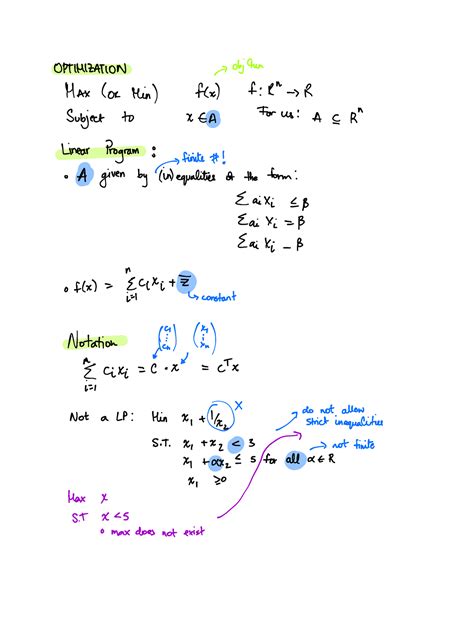 OPTIMIZATION
→ obj func
Max (or Min) f(x) f: Rⁿ → R
Subject to x ∈ A For us: A ⊆ Rⁿ
Linear Program:
→ finite #!
• A given by (in)equalities of the form:
Σ aᵢ xᵢ ≤ β
Σ aᵢ xᵢ = β
Σ aᵢ xᵢ – β
• f(x) = Σᵢ₌₁ⁿ cᵢ xᵢ + z̄
→ constant
Notation (c₁ ⋮ cₙ) (x₁ ⋮ xₙ)
Σᵢ₌₁ⁿ cᵢ xᵢ = c · x = cᵀx
Not a LP: Min x₁ + 1/x₂ X
→ do not allow
strict inequalities
S.T. x₁ + x₂ < 3
→ not finite
x₁ + αx₂ ≤ 5 for all α ∈ R
x₁ ≥0
Max x
S.T x < 5
• max does not exist